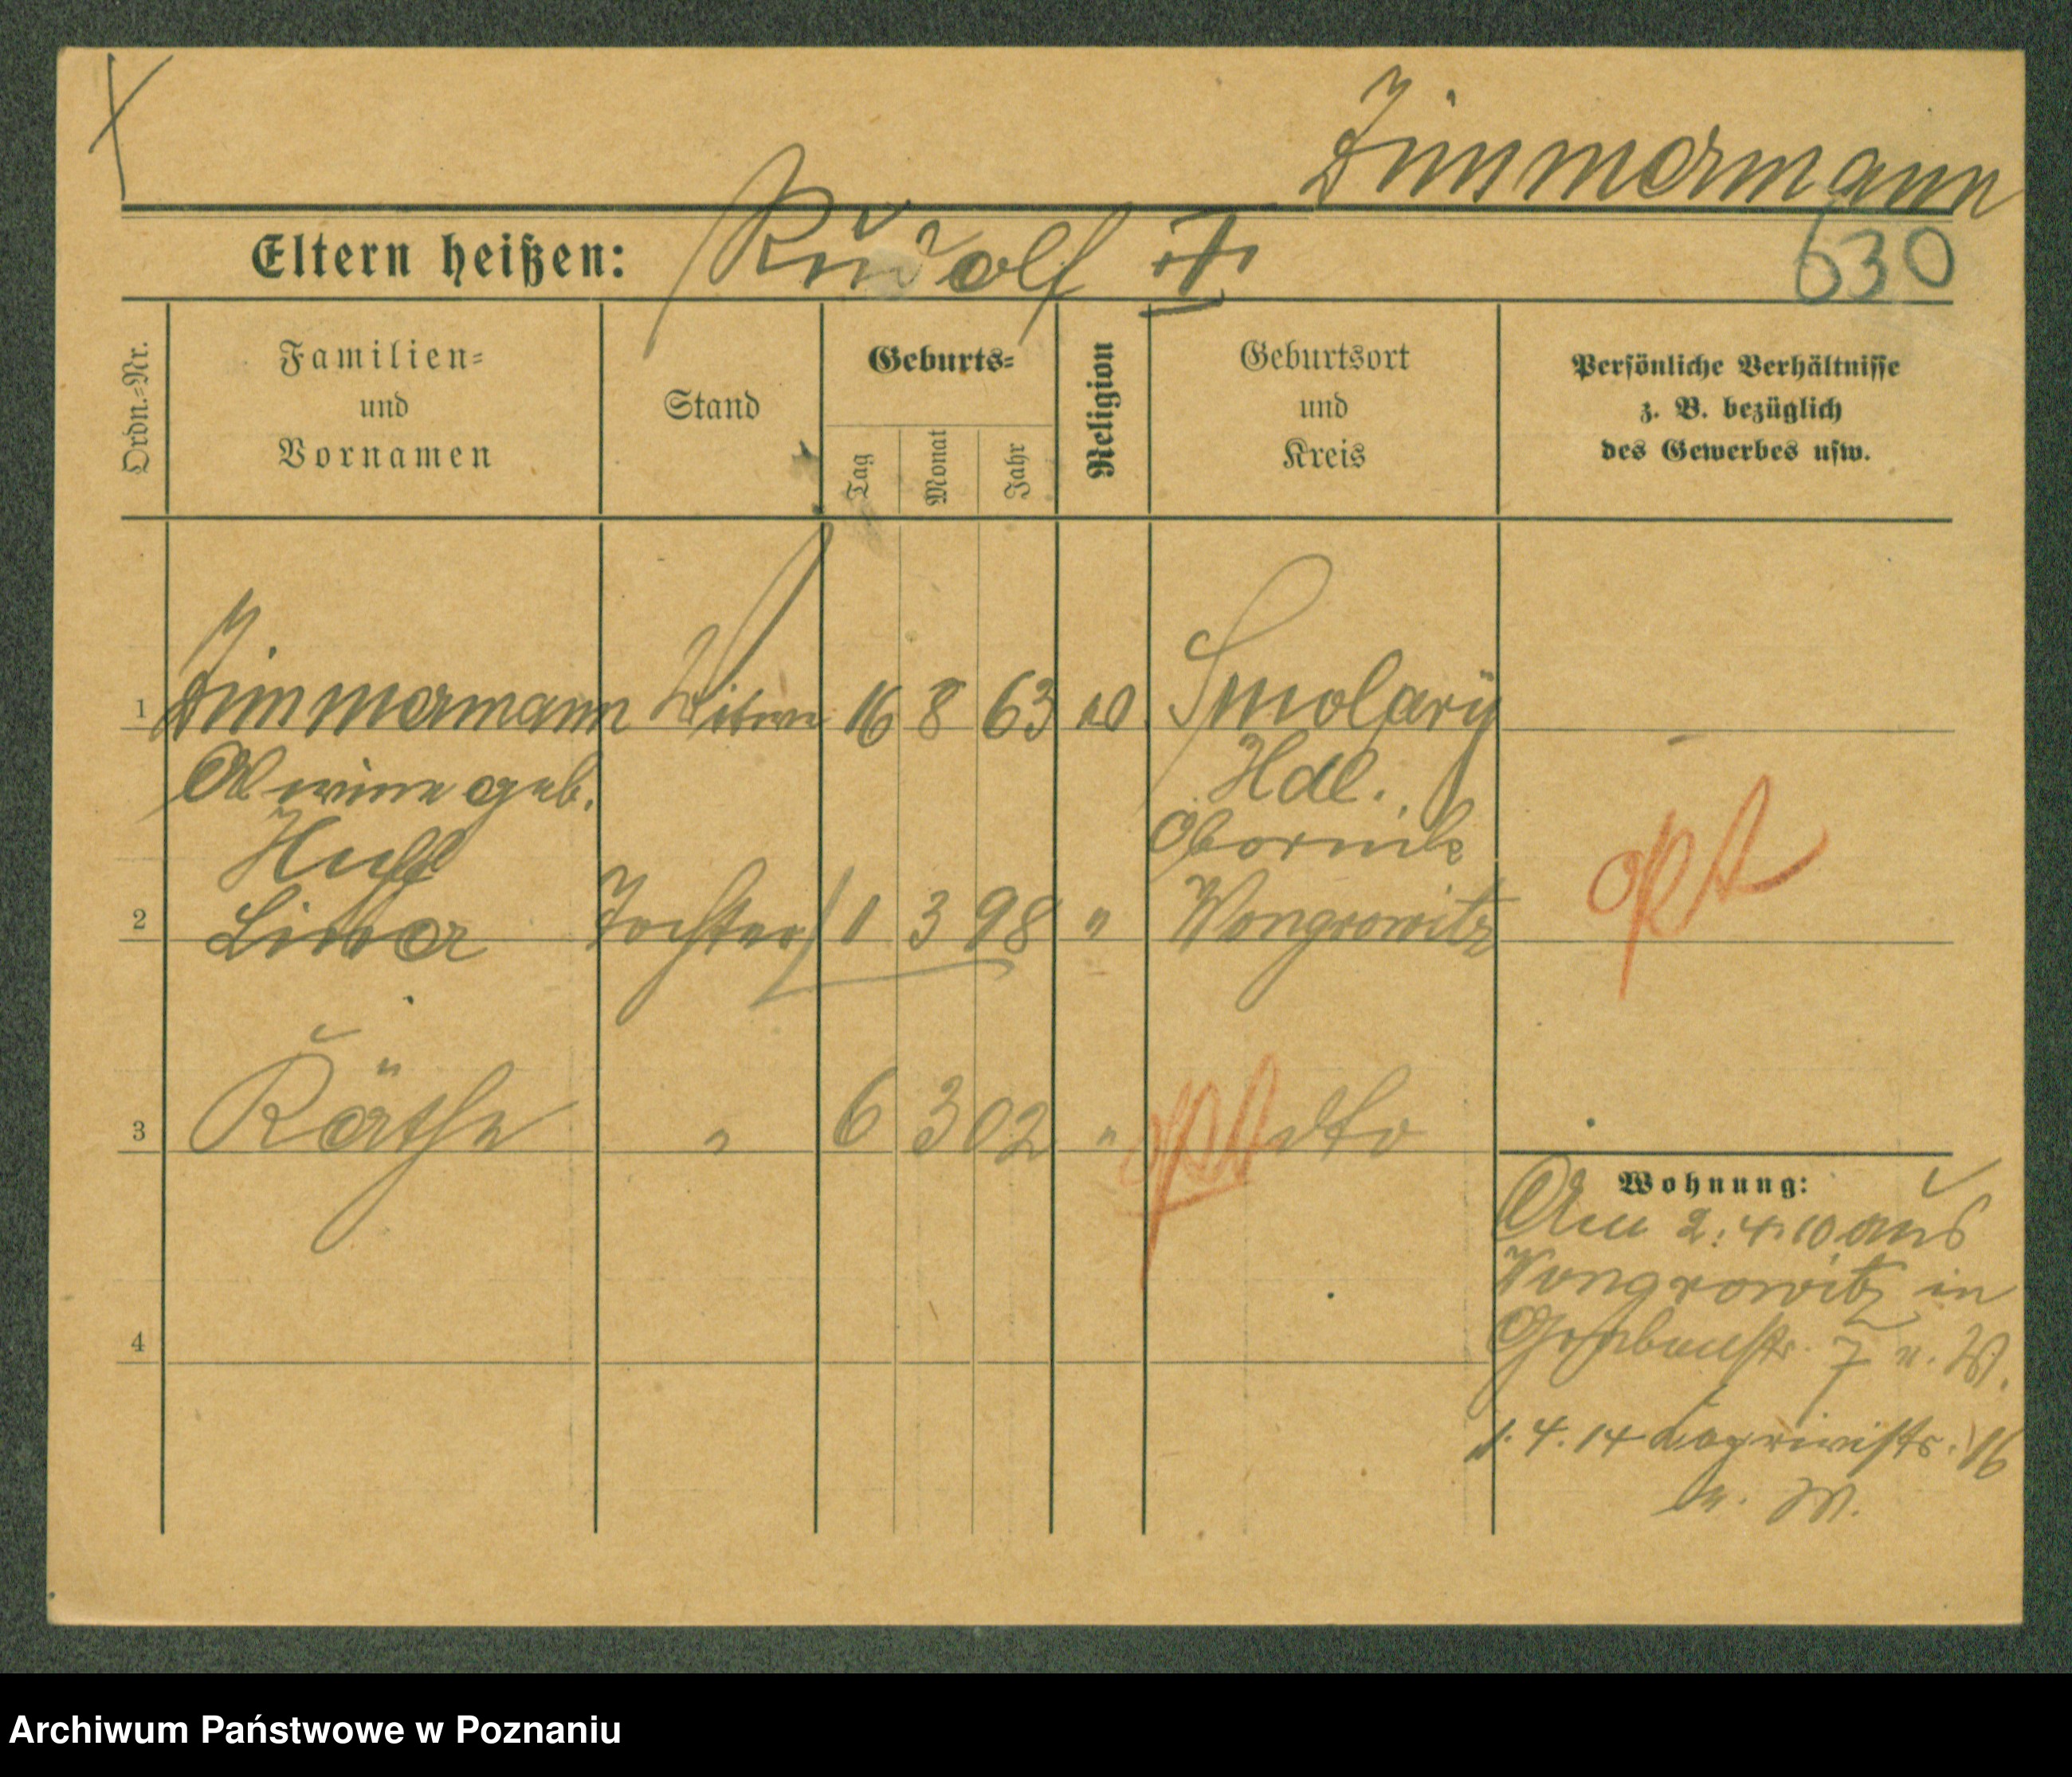 Zimmermann
Eltern heißen: Rudolf †
630
Ordn.-Nr. Familien- und Vornamen Stand Geburts- Tag Monat Jahr Religion Geburtsort und Kreis Persönliche Verhältnisse z. B. bezüglich des Gewerbes usw.
1 Zimmermann Witwe 16 8 63 Smolary
Alwine geb. Hdl.
Obornik
2 Tochter 1 3 98 " Wongrowitz
3 Käthe " 6 3 02 " dto
Wohnung:
Am 2.4.10 aus
Wongrowitz in
7 u. W.
4
1.4.14 16
u. W.
Archiwum Państwowe w Poznaniu